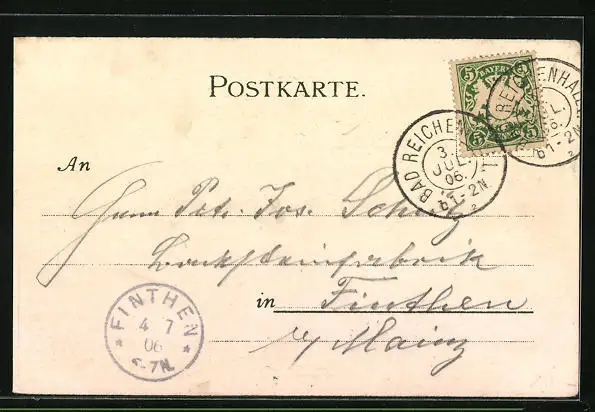 POSTKARTE.
5 BAYERN 5
5 5
BAD REICHENHALL
3. JUL. 06.
1-2N
REICHENHALL
JUL.
1-2N
An
Herrn Ptr. Jos. Schulz
Backsteinfabrik
in Finthen
a/ Mainz
FINTHEN
4 7
06
-7N.